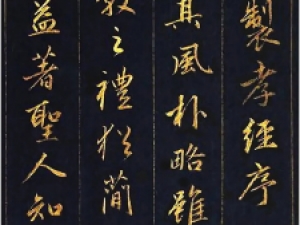 製孝經序
其風朴略雖
敬之禮猶簡
益著聖人知